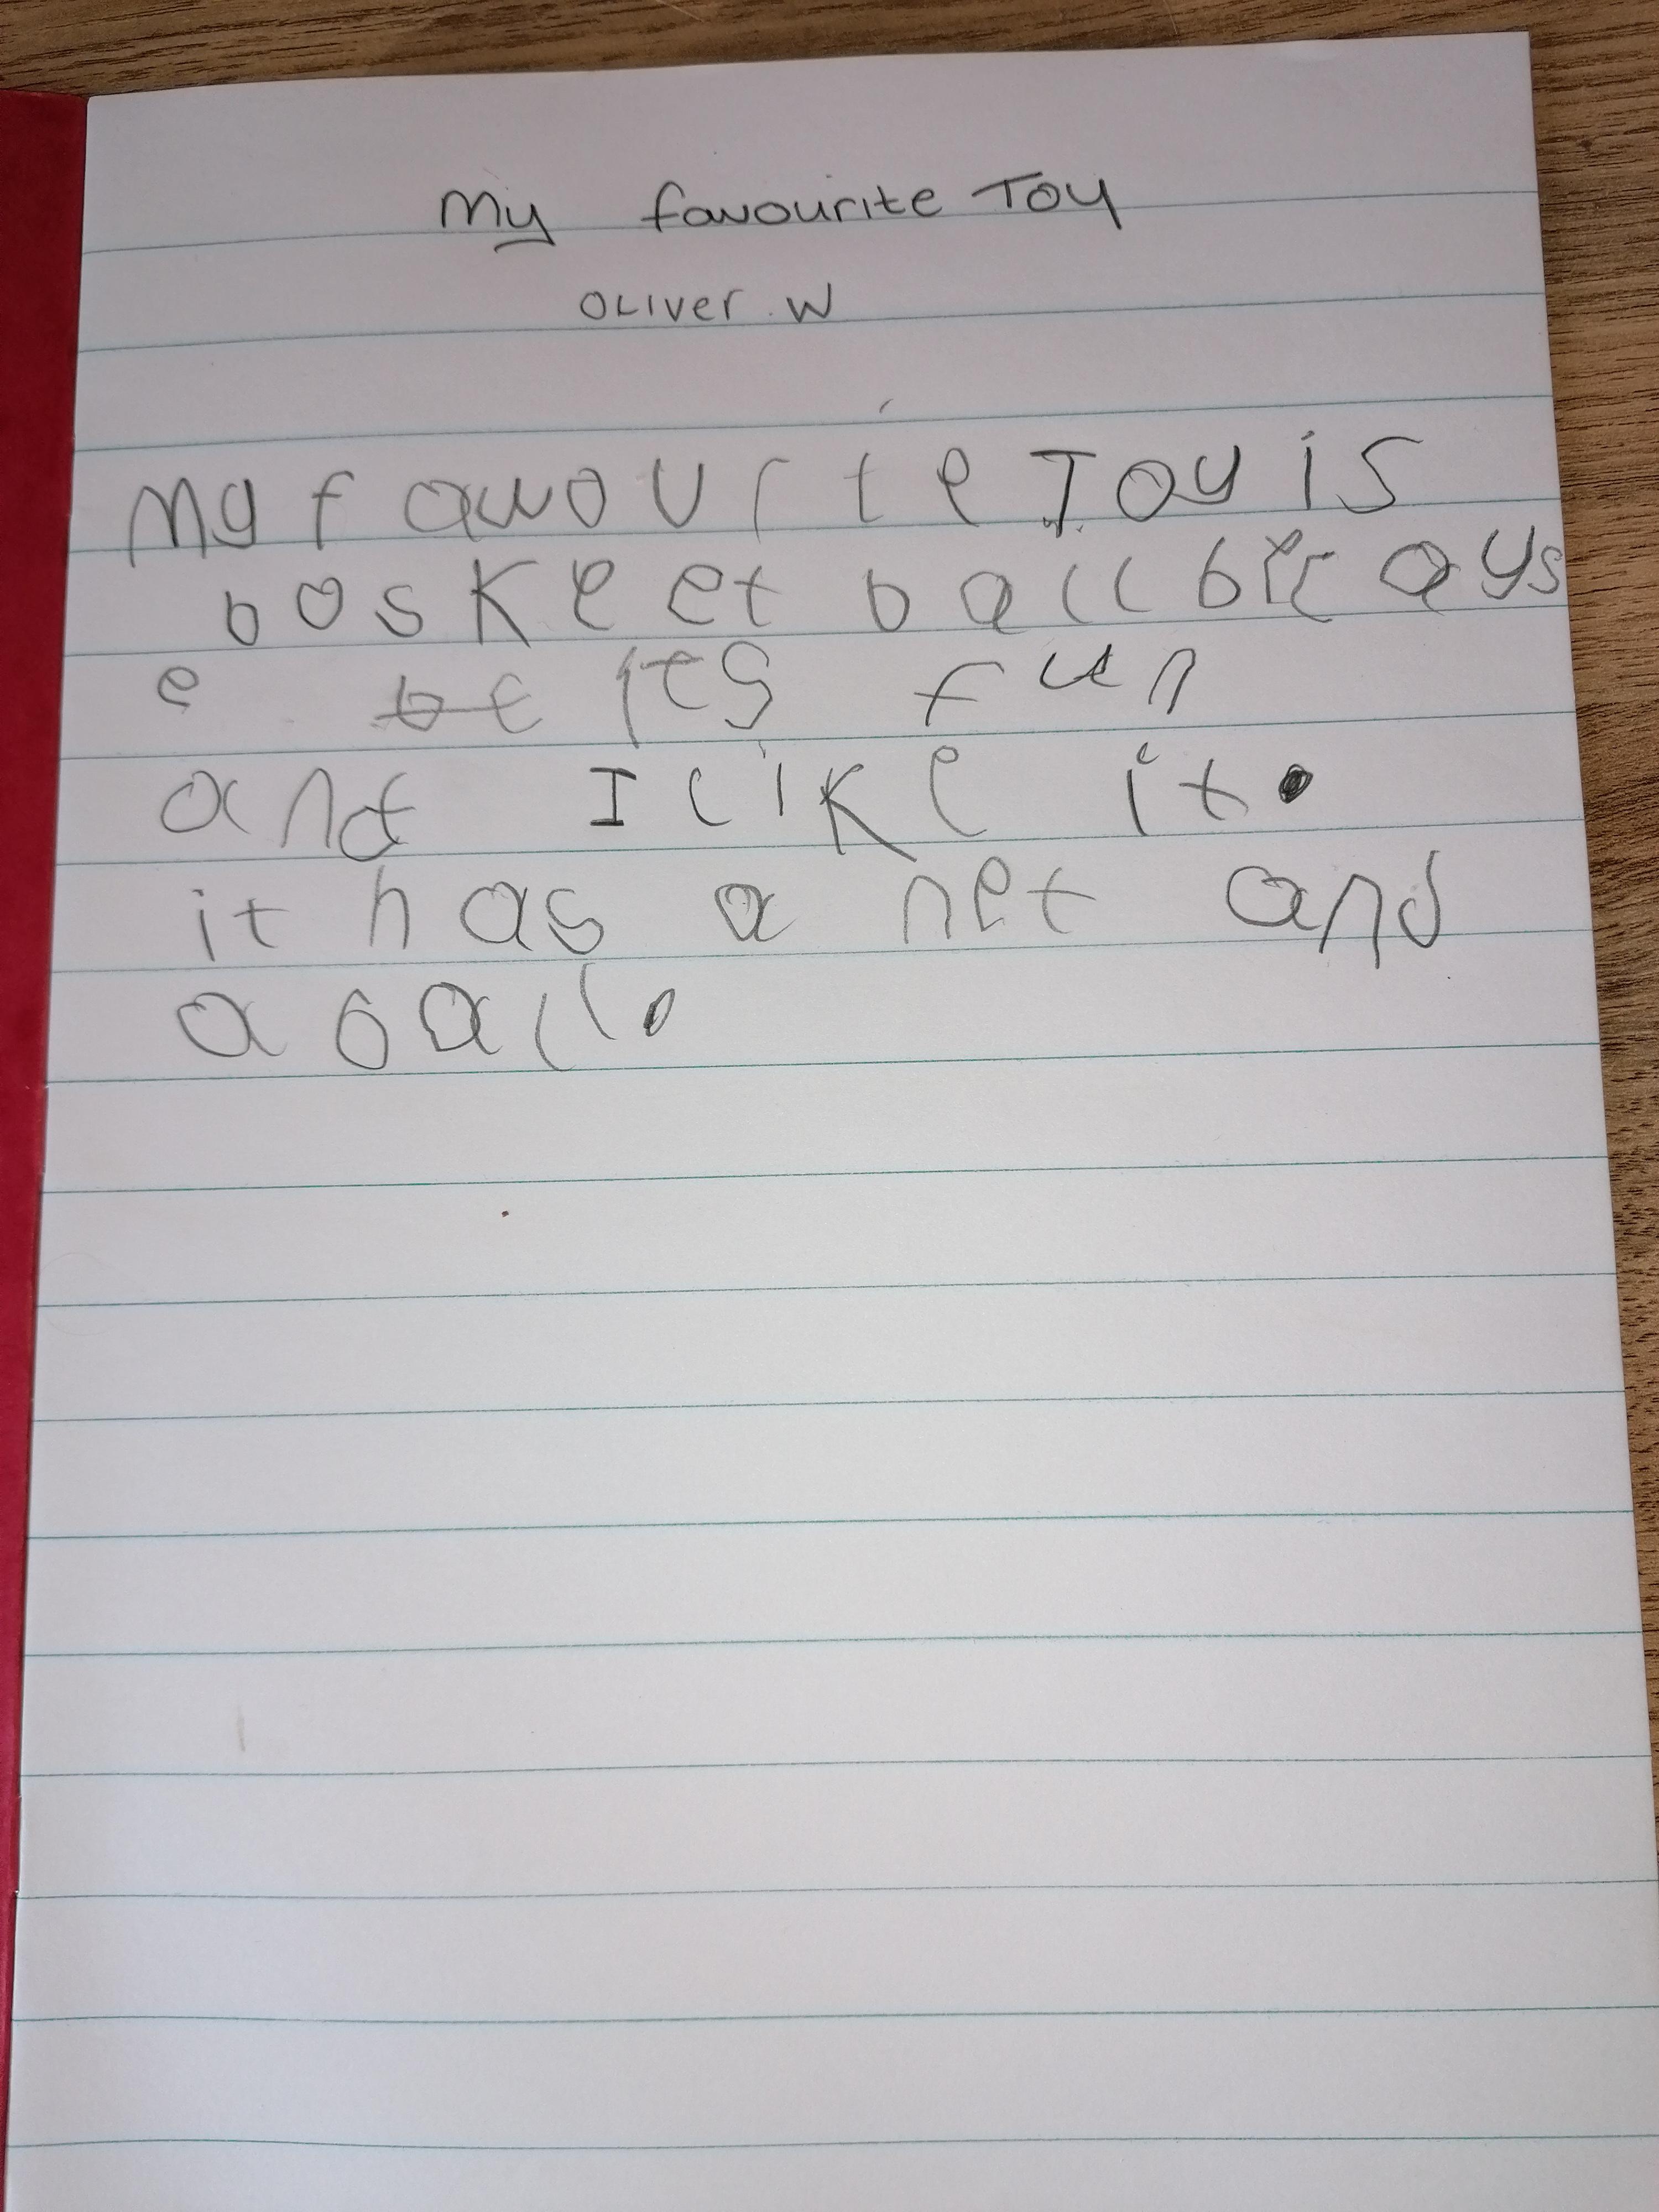 My favourite Toy
OLiver.W
My fawourte Toy is
baskeet ball becays
e be its fun
and I like it.
it has a net and
a ball.